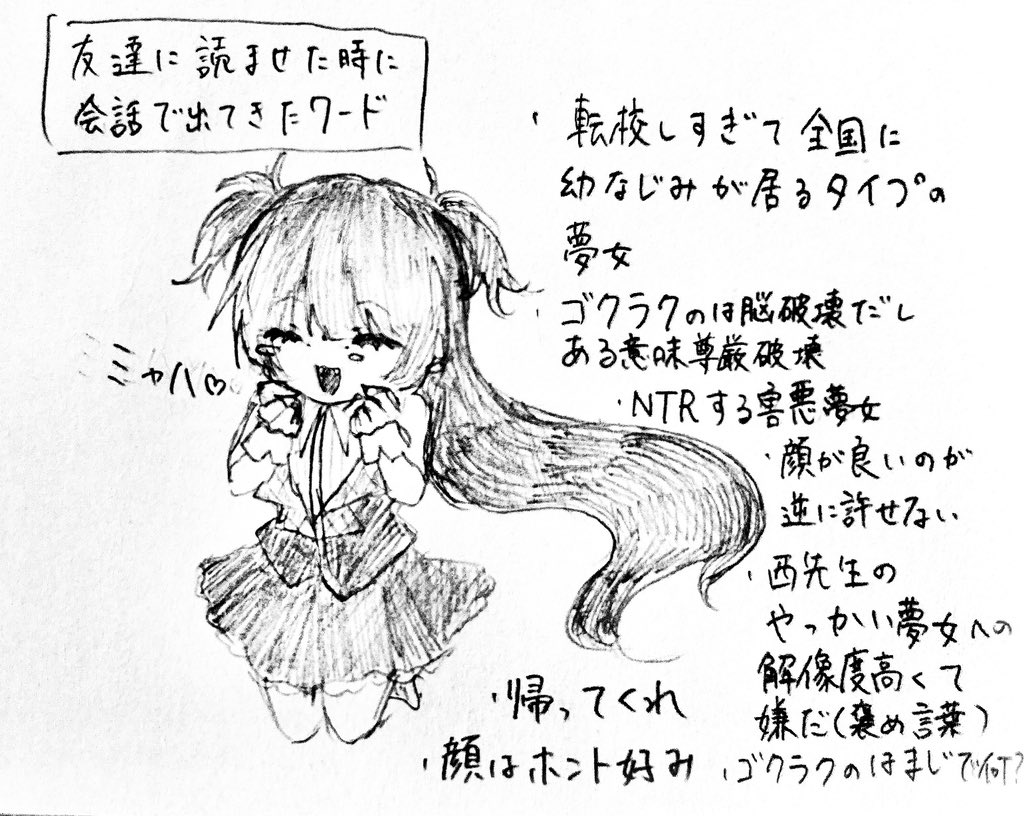 友達に読ませた時に
会話で出てきたワード
・転校しすぎて全国に
幼なじみが居るタイプの
夢女
・ゴクラクのは脳破壊だし
ある意味尊厳破壊
・NTRする害悪夢女
・顔が良いのが
逆に許せない
・西先生の
やっかい夢女への
解像度高くて
嫌だ(褒め言葉)
ミャハ♡
・帰ってくれ
・顔はホント好み
・ゴクラクのはまじで何?